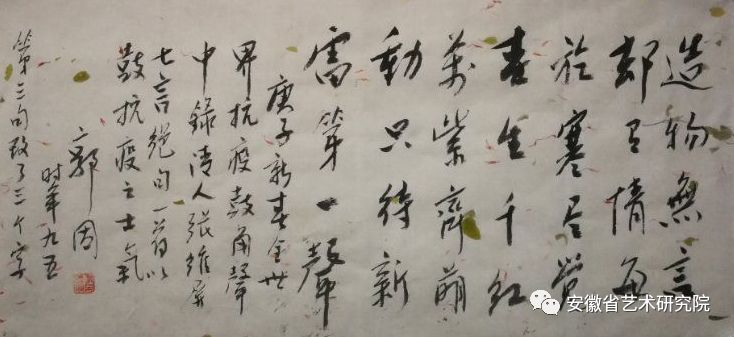 造物無言
却有情每
於寒尽觉
春生千红
萬紫齊萌
動只待新
雷第一聲
庚子新春全世
界抗疫鼓角聲
中錄清人張維屏
七言绝句一首以
鼓抗疫之士氣
郭因
时年九五
第三句改了三个字
安徽省艺术研究院